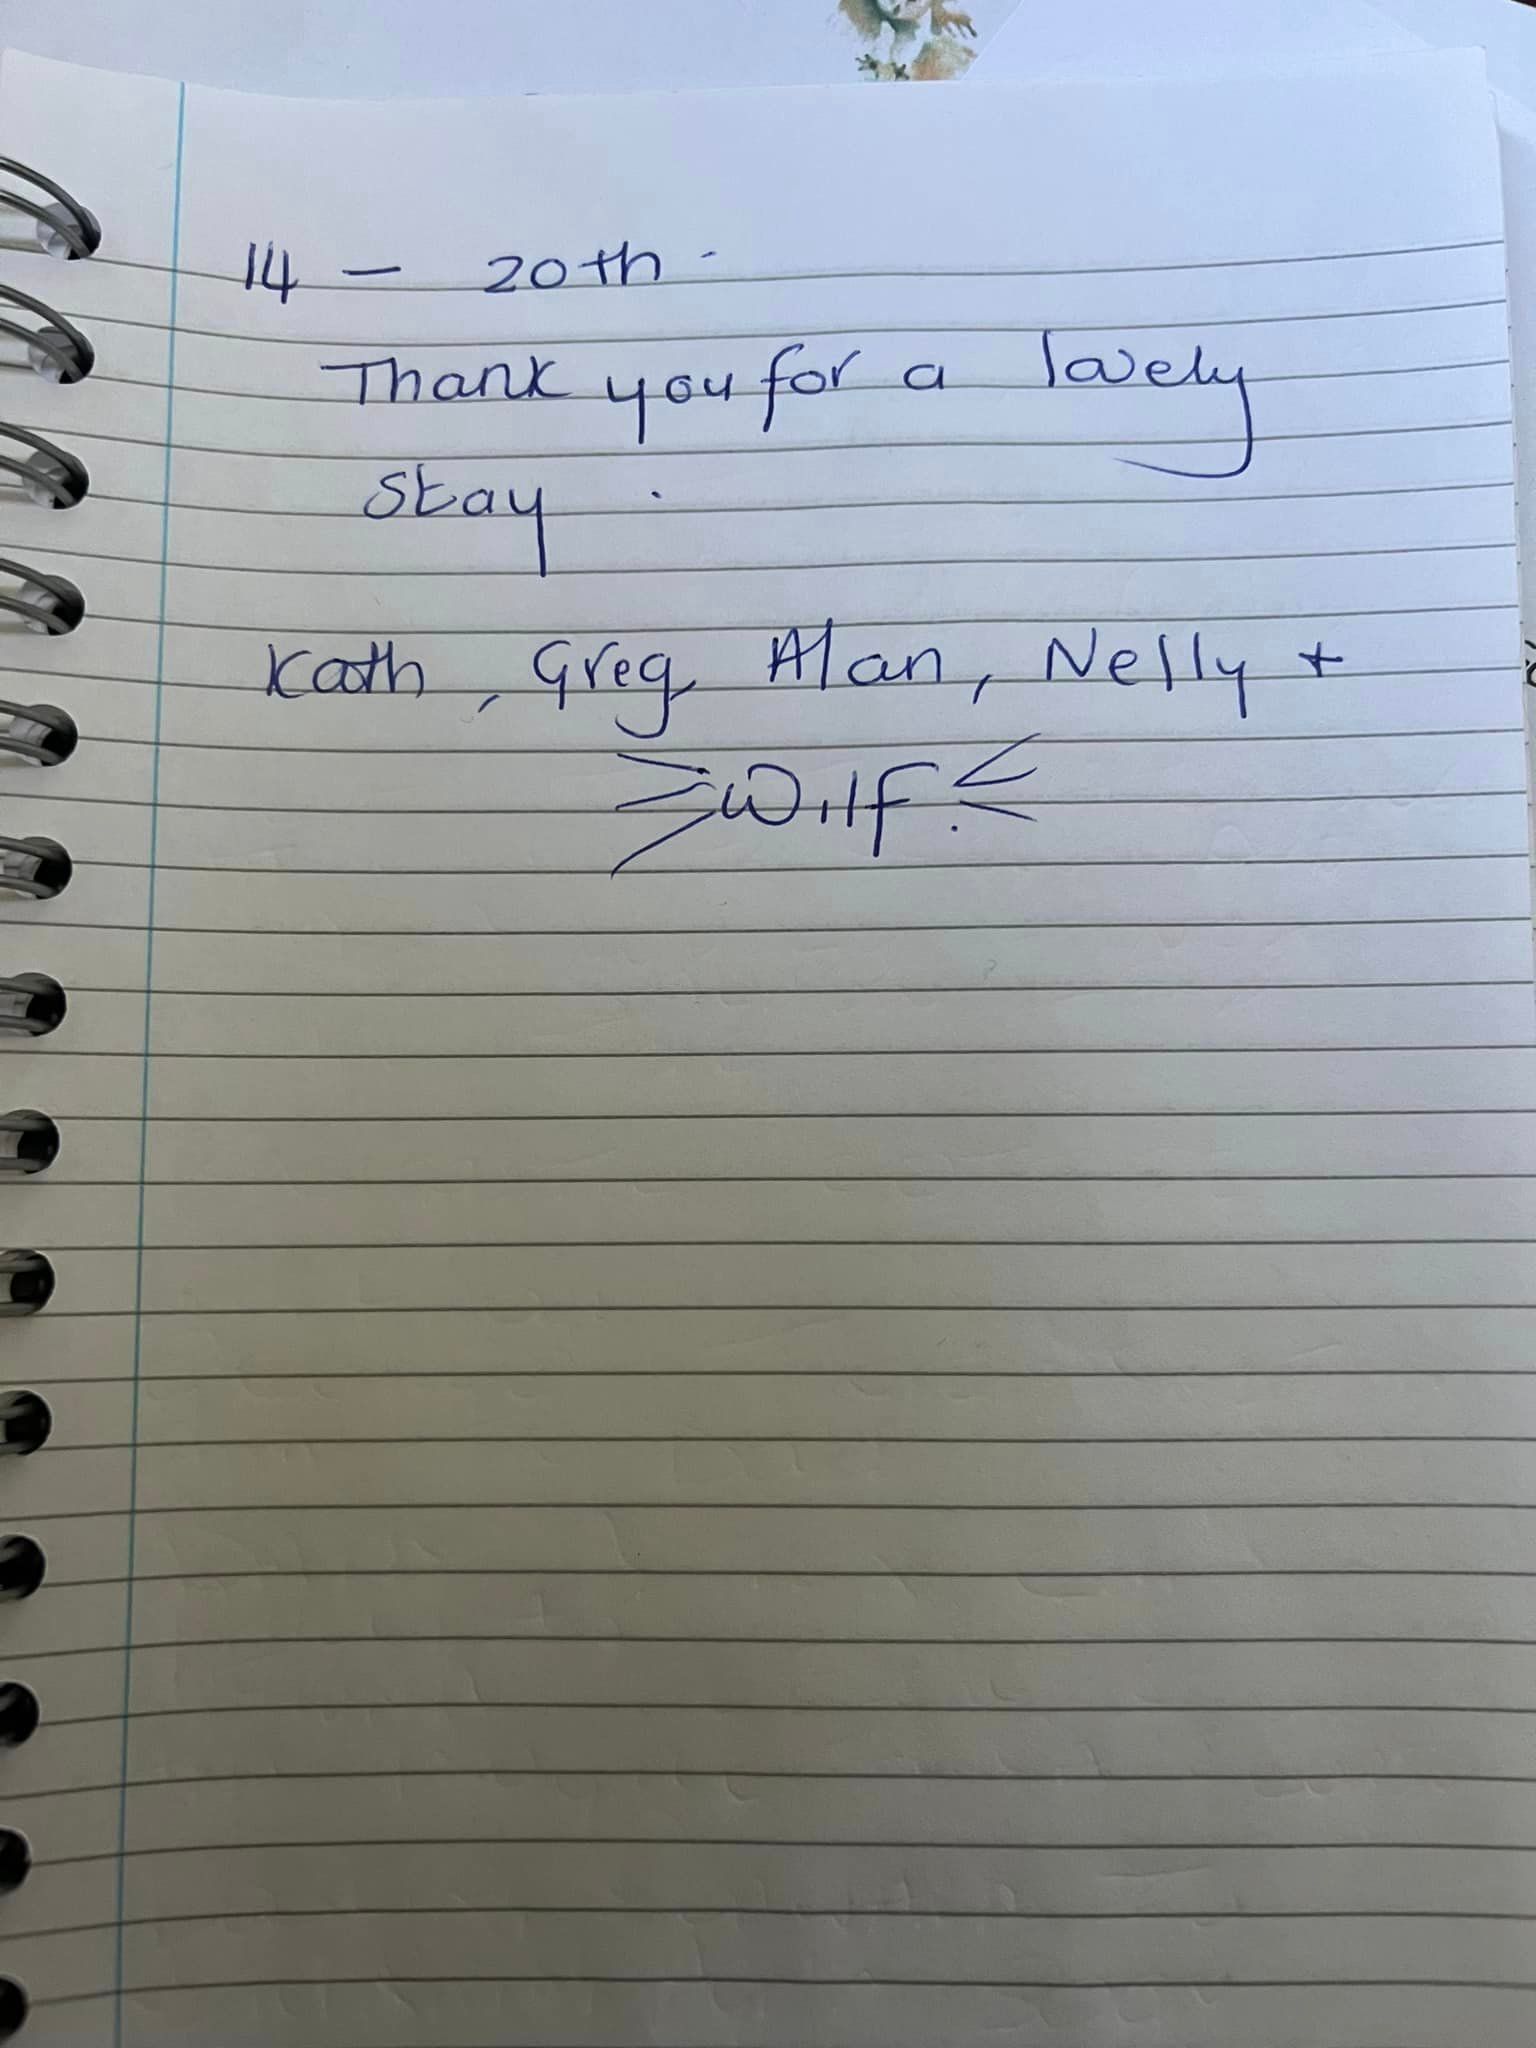 14 - 20th.
Thank you for a lovely
stay.
Kath, Greg, Alan, Nelly +
Wilf.